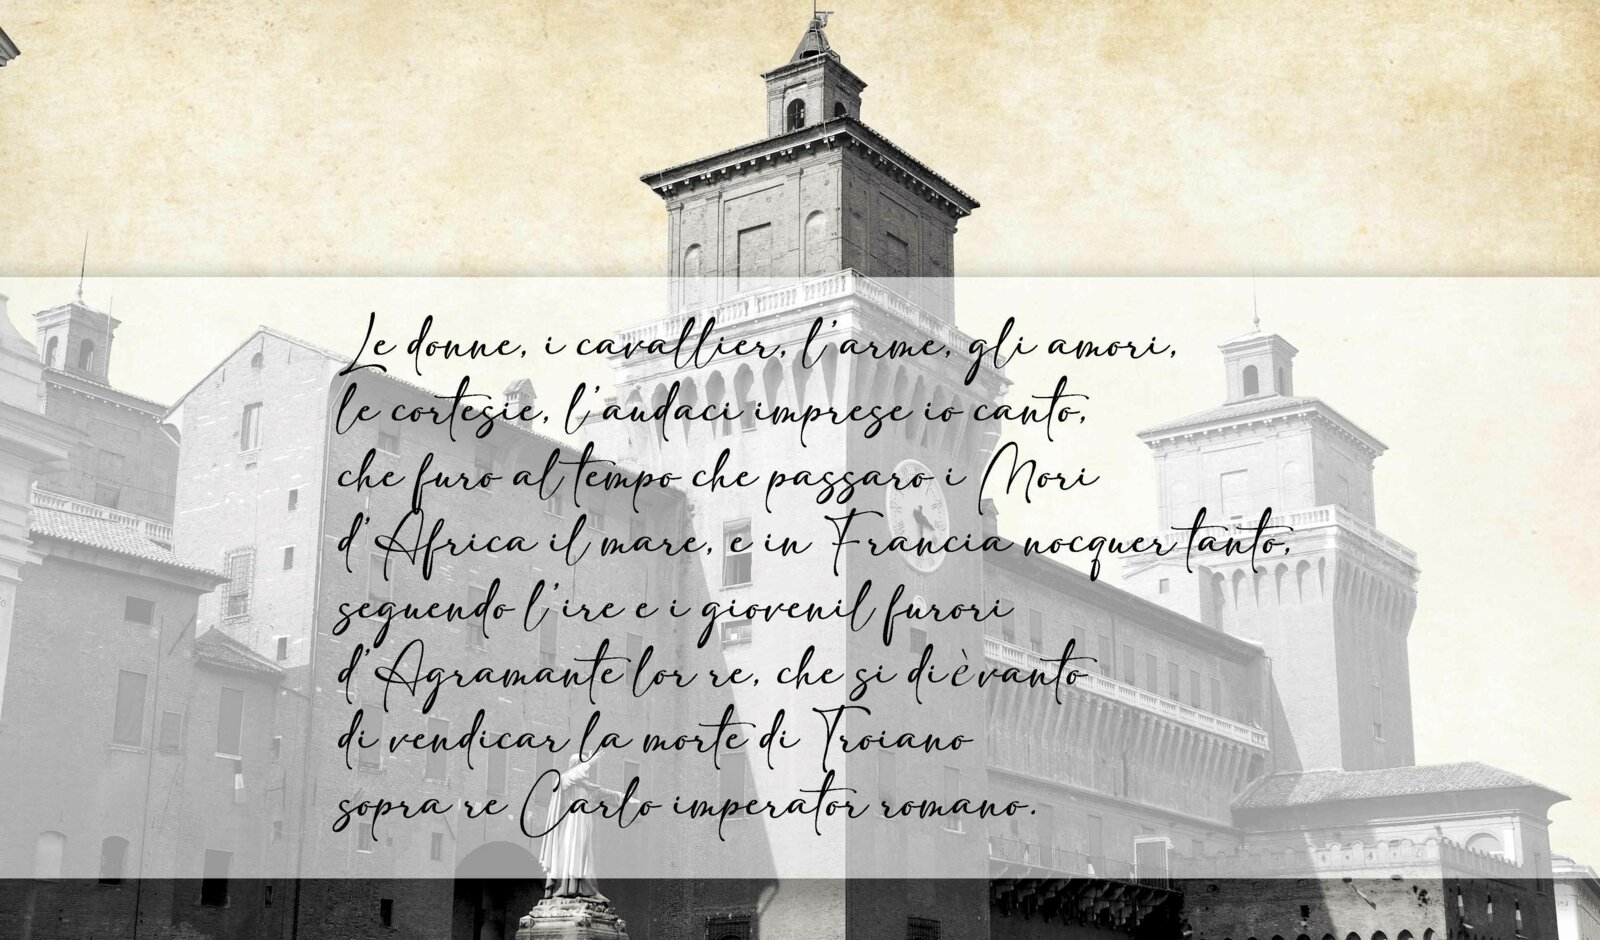 Le donne, i cavallier, l'arme, gli amori,
le cortesie, l'audaci imprese io canto,
che furo al tempo che passaro i Mori
d'Africa il mare, e in Francia nocquer tanto,
seguendo l'ire e i giovenil furori
d'Agramante lor re, che si diè vanto
di vendicar la morte di Troiano
sopra re Carlo imperator romano.